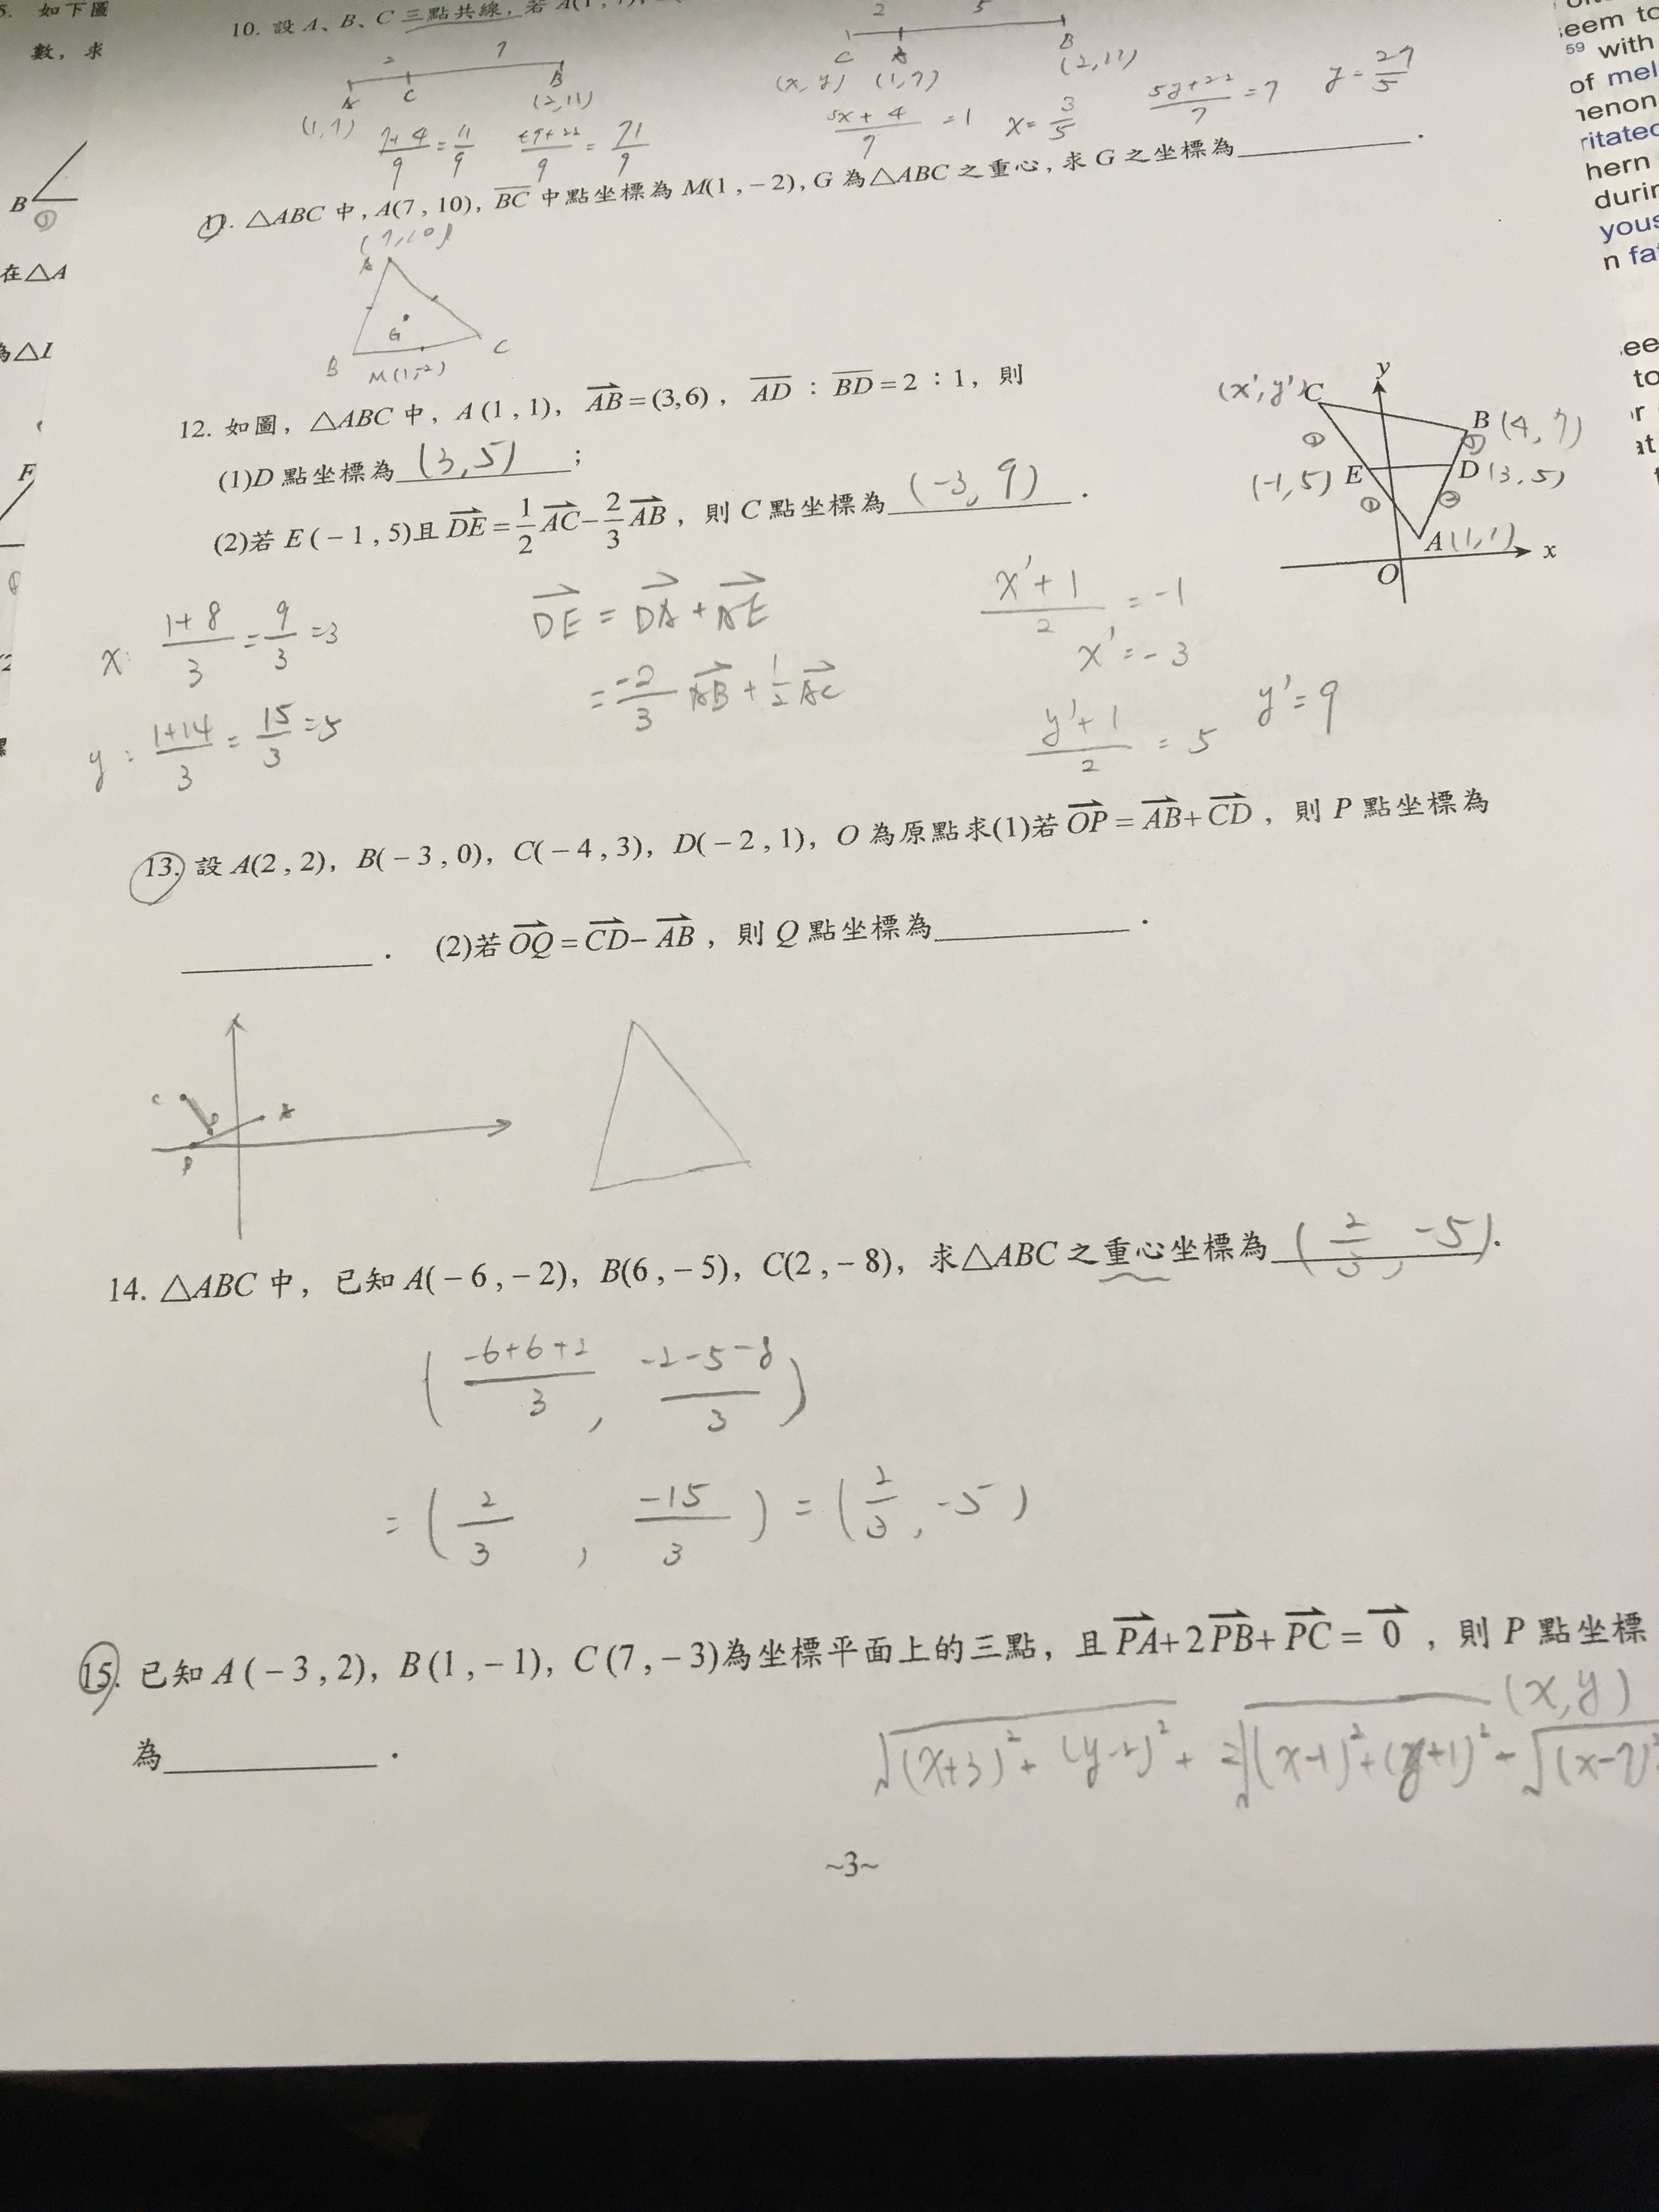 5. 如下圖
數，求
B
①
在△A
為△I
F
10. 設 A、B、C 三點共線，若 A(1, 7),
2 7
A C B
(1,7) (2,11)
7+4/9 = 11/9 49+22/9 = 71/9
2 5
C A B
(x, y) (1,7) (2,11)
5x+4/7 = 1 x = 3/5 5y+22/7 = 7 y = 27/5
11. △ABC 中, A(7, 10), BC 中點坐標為 M(1, −2), G 為△ABC 之重心, 求 G 之坐標為________.
(7,10)
A
G
B C
M(1,-2)
12. 如圖，△ABC 中，A(1, 1)，AB=(3,6)，AD：BD=2：1，則
(1)D 點坐標為 (3,5) ；
(2)若 E(−1, 5)且 DE=1/2 AC−2/3 AB，則 C 點坐標為 (-3, 9) .
(x', y') C y
B (4, 7)
① ①
(-1,5) E D (3,5)
① ②
A (1,1) x
O
x: 1+8/3 = 9/3 = 3
y: 1+14/3 = 15/3 = 5
DE = DA + AE
= -2/3 AB + 1/2 AC
x'+1/2 = -1
x' = -3
y'+1/2 = 5 y' = 9
13. 設 A(2, 2)，B(−3, 0)，C(−4, 3)，D(−2, 1)，O 為原點求(1)若 OP = AB+CD，則 P 點坐標為
________. (2)若 OQ=CD−AB，則 Q 點坐標為________.
C A
14. △ABC 中，已知 A(−6, −2)，B(6, −5)，C(2, −8)，求△ABC 之重心坐標為 (2/3, -5).
(-6+6+2/3, -2-5-8/3)
= (2/3, -15/3) = (2/3, -5)
15. 已知 A(−3, 2)，B(1, −1)，C(7, −3)為坐標平面上的三點，且 PA+2PB+PC= 0，則 P 點坐標
(x,y)
為________.
√(x+3)²+(y-2)² + 2√(x-1)²+(y+1)² + √(x-7)²
~3~
seem to
59 with
of mel
nenon
ritated
hern
durin
yous
n fa